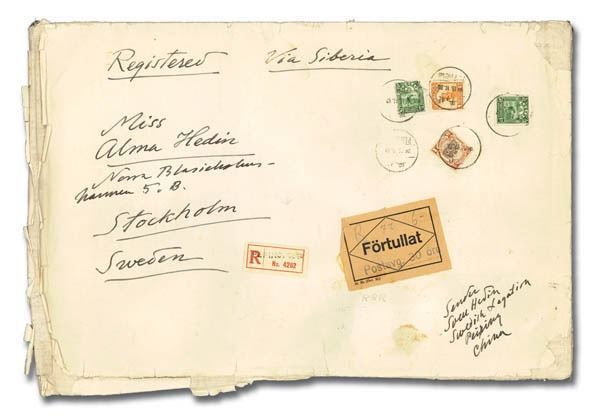 Registered Via Siberia
Miss
Alma Hedin
Norra Blasieholms-
hamnen 5. B.
Stockholm
Sweden
R
No. 4202
R 72 6-
Förtullat
Postavg. 30 öre
Sender
Sven Hedin
Swedish Legation
Peiping
China